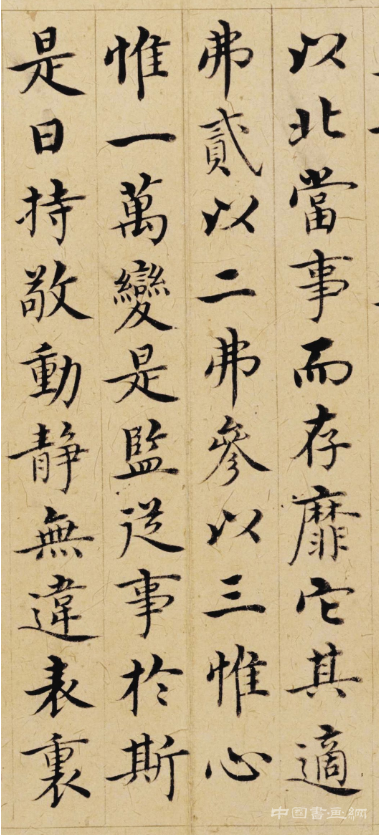 以北當事而存靡它其適
弗貳以二弗參以三惟心
惟一萬變是監從事於斯
是曰持敬動静無違表裏
中国書画網